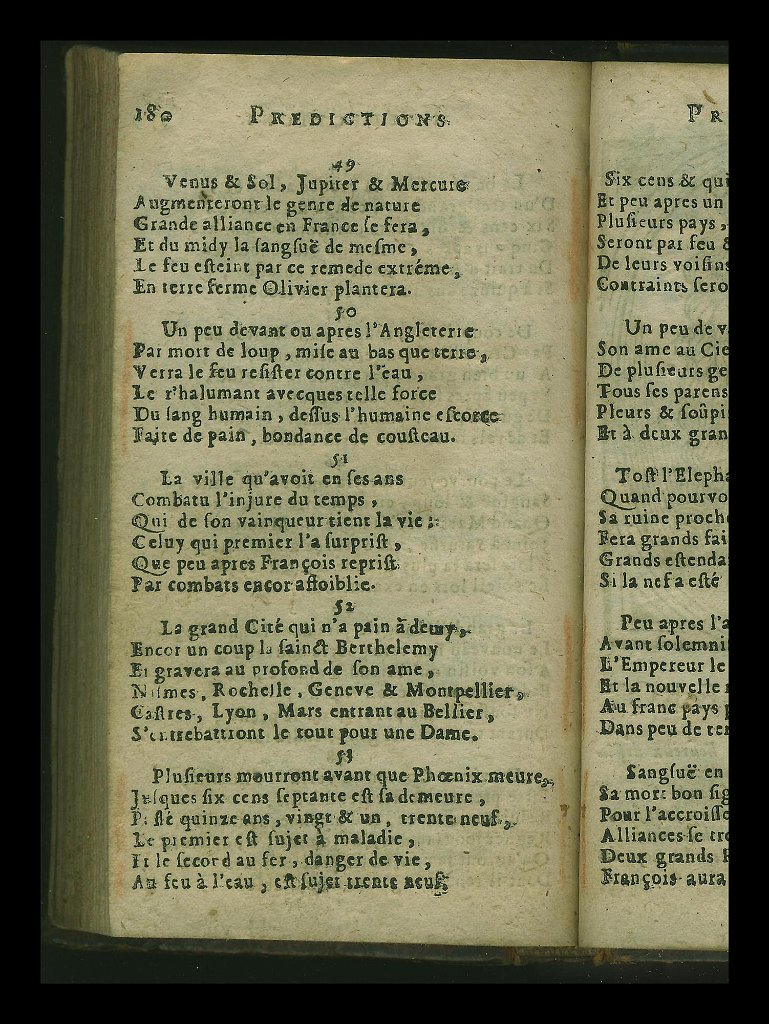 180 PREDICTIONS
49
Venus & Sol, Jupiter & Mercure
Augmenteront le genre de nature
Grande alliance en France ſe fera,
Et du midy la ſangſuë de meſme,
Le feu eſteint par ce remede extréme,
En terre ferme Olivier plantera.
50
Un peu devant ou apres l'Angleterre
Par mort de loup, miſe au bas que terre,
Verra le feu reſiſter contre l'eau,
Le r'halumant avecques telle force
Du ſang humain, deſſus l'humaine eſcorce
Faite de pain, bondance de couſteau.
51
La ville qu'avoit en ſes ans
Combatu l'injure du temps,
Qui de ſon vainqueur tient la vie:
Celuy qui premier l'a ſurpriſt,
Que peu apres François repriſt
Par combats encor affoiblie.
52
La grand Cité qui n'a pain à demy,
Encor un coup la ſainct Berthelemy
Et gravera au profond de ſon ame,
Niſmes, Rochelle, Geneve & Montpellier,
Caſtres, Lyon, Mars entrant au Bellier,
S'entrebattront le tout pour une Dame.
53
Pluſieurs mourront avant que Phœnix meure,
Juſques ſix cens ſeptante eſt ſa demeure,
Paſſé quinze ans, vingt & un, trente neuf,
Le premier eſt ſujet à maladie,
Et le ſecord au fer, danger de vie,
Au feu à l'eau, eſt ſujet trente neuf.
PR
Six cens & qui
Et peu apres un
Pluſieurs pays,
Seront par feu &
De leurs voiſins
Contraints ſero
Un peu de v
Son ame au Cie
De pluſieurs ge
Tous ſes parens
Pleurs & ſoûpi
Et à deux gran
Toſt l'Elepha
Quand pourvo
Sa ruine proche
Fera grands fai
Grands eſtenda
Si la nef a eſté
Peu apres l'a
Avant ſolemni
L'Empereur le
Et la nouvelle
Au franc pays
Dans peu de te
Sangſuë en
Sa mort bon ſig
Pour l'accroiſſe
Alliances ſe tr
Deux grands
François aura